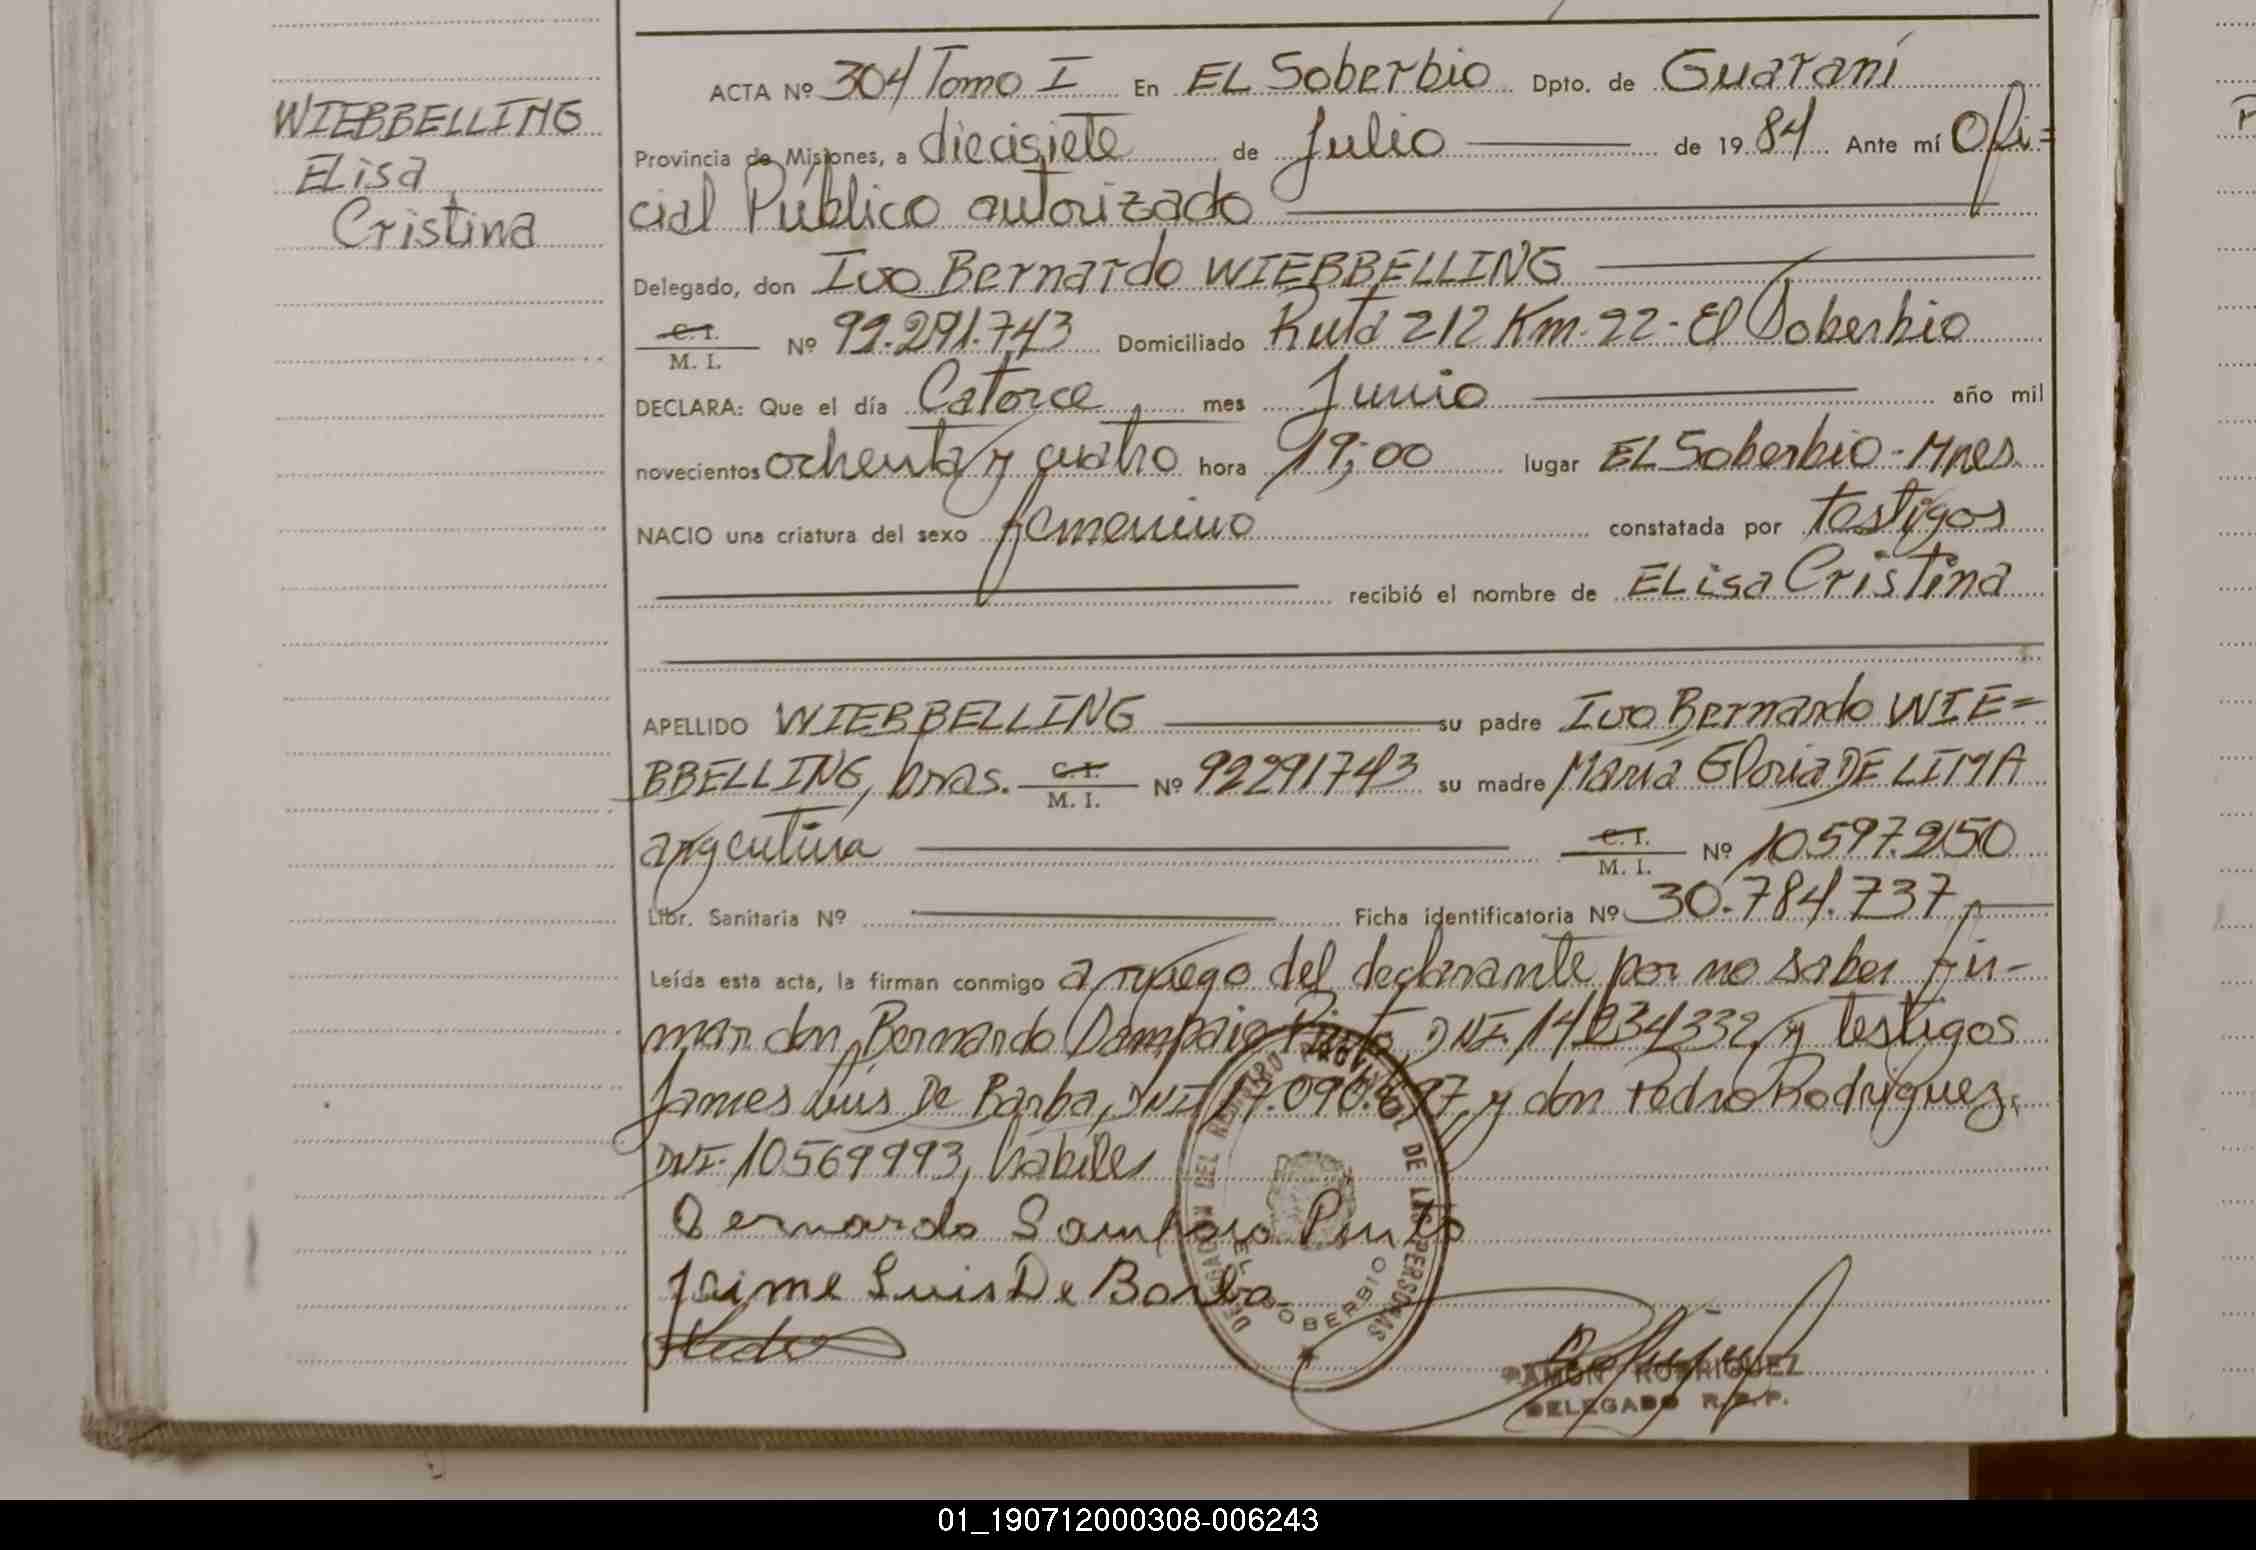 WIEBBELLING
ELisa
Cristina
ACTA Nº 304 Tomo I En EL Soberbio Dpto. de Guaraní
Provincia de Misiones, a diecisiete de Julio de 1984 Ante mí Ofi=
cial Público autorizado
Delegado, don Ivo Bernardo WIEBBELLING
C. I.
M. I. Nº 92.291.743 Domiciliado Ruta 212 Km-22-El Soberbio
DECLARA: Que el día Catorce mes Junio año mil
novecientos ochenta y cuatro hora 19;00 lugar EL Soberbio-Mnes
NACIO una criatura del sexo femenino constatada por testigos
recibió el nombre de ELisa Cristina
APELLIDO WIEBBELLING su padre Ivo Bernardo WIE=
BBELLING, bras. C. I. M. I. Nº 92291743 su madre María Gloria DE LIMA
argentina C. I. M. I. Nº 10.597.250
Libr. Sanitaria Nº Ficha identificatoria Nº 30.784.737
Leída esta acta, la firman conmigo a ruego del declarante por no saber fir-
mar don Bernardo Sampaio Pinto, DNI. y testigos
James Luis De Barba, DNI y don Pedro Rodriguez,
DNI. 10569993, hábiles
Bernardo Sampaio Pinto
Jaime Luis De Borba
DELEGACION DEL REGISTRO PROVINCIAL DE LAS PERSONAS
EL SOBERBIO
RAMON RODRIGUEZ
DELEGADO R.P.P.
01_190712000308-006243